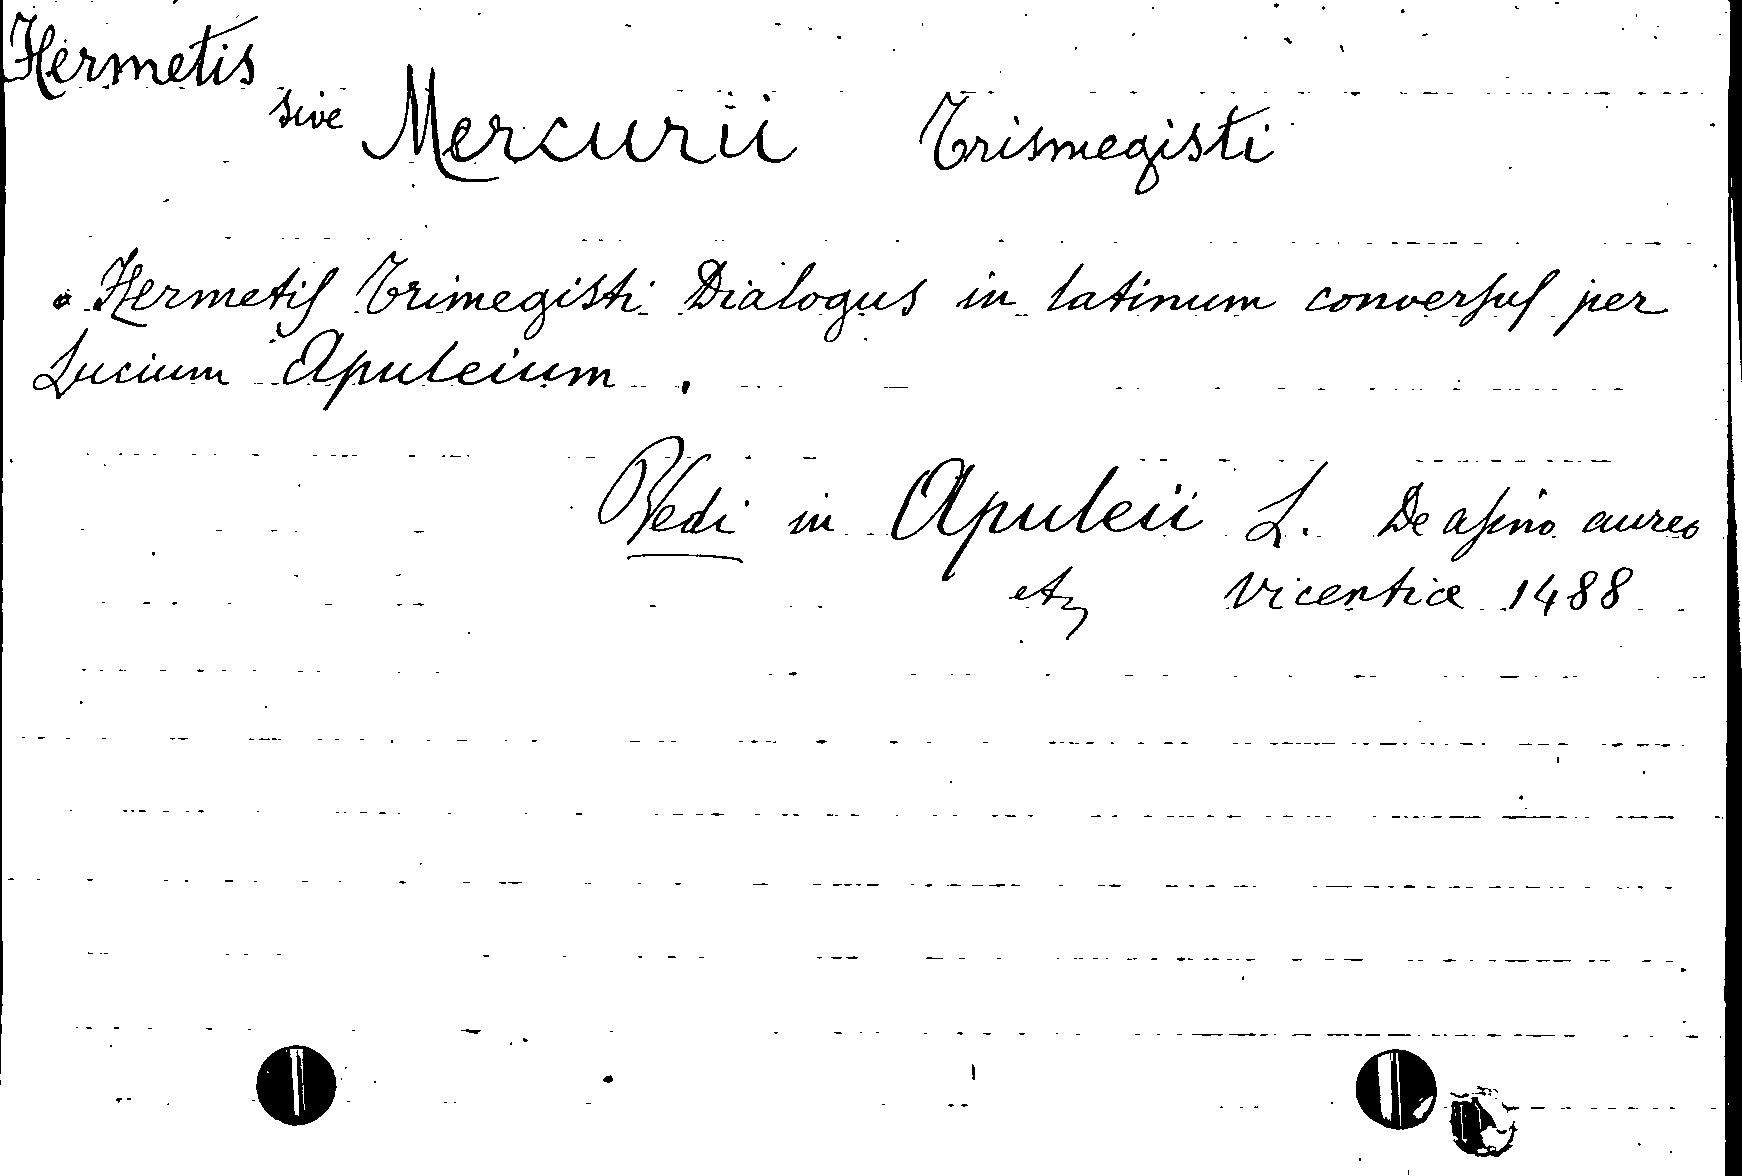 Hermetis sive Mercurii Trismegisti
Hermetiſ Trimegisti Dialogus in latinum converſuſ per
Lucium Apuleium .
Vedi in Apuleii L. De aſino aureo
etc Vicentiæ 1488